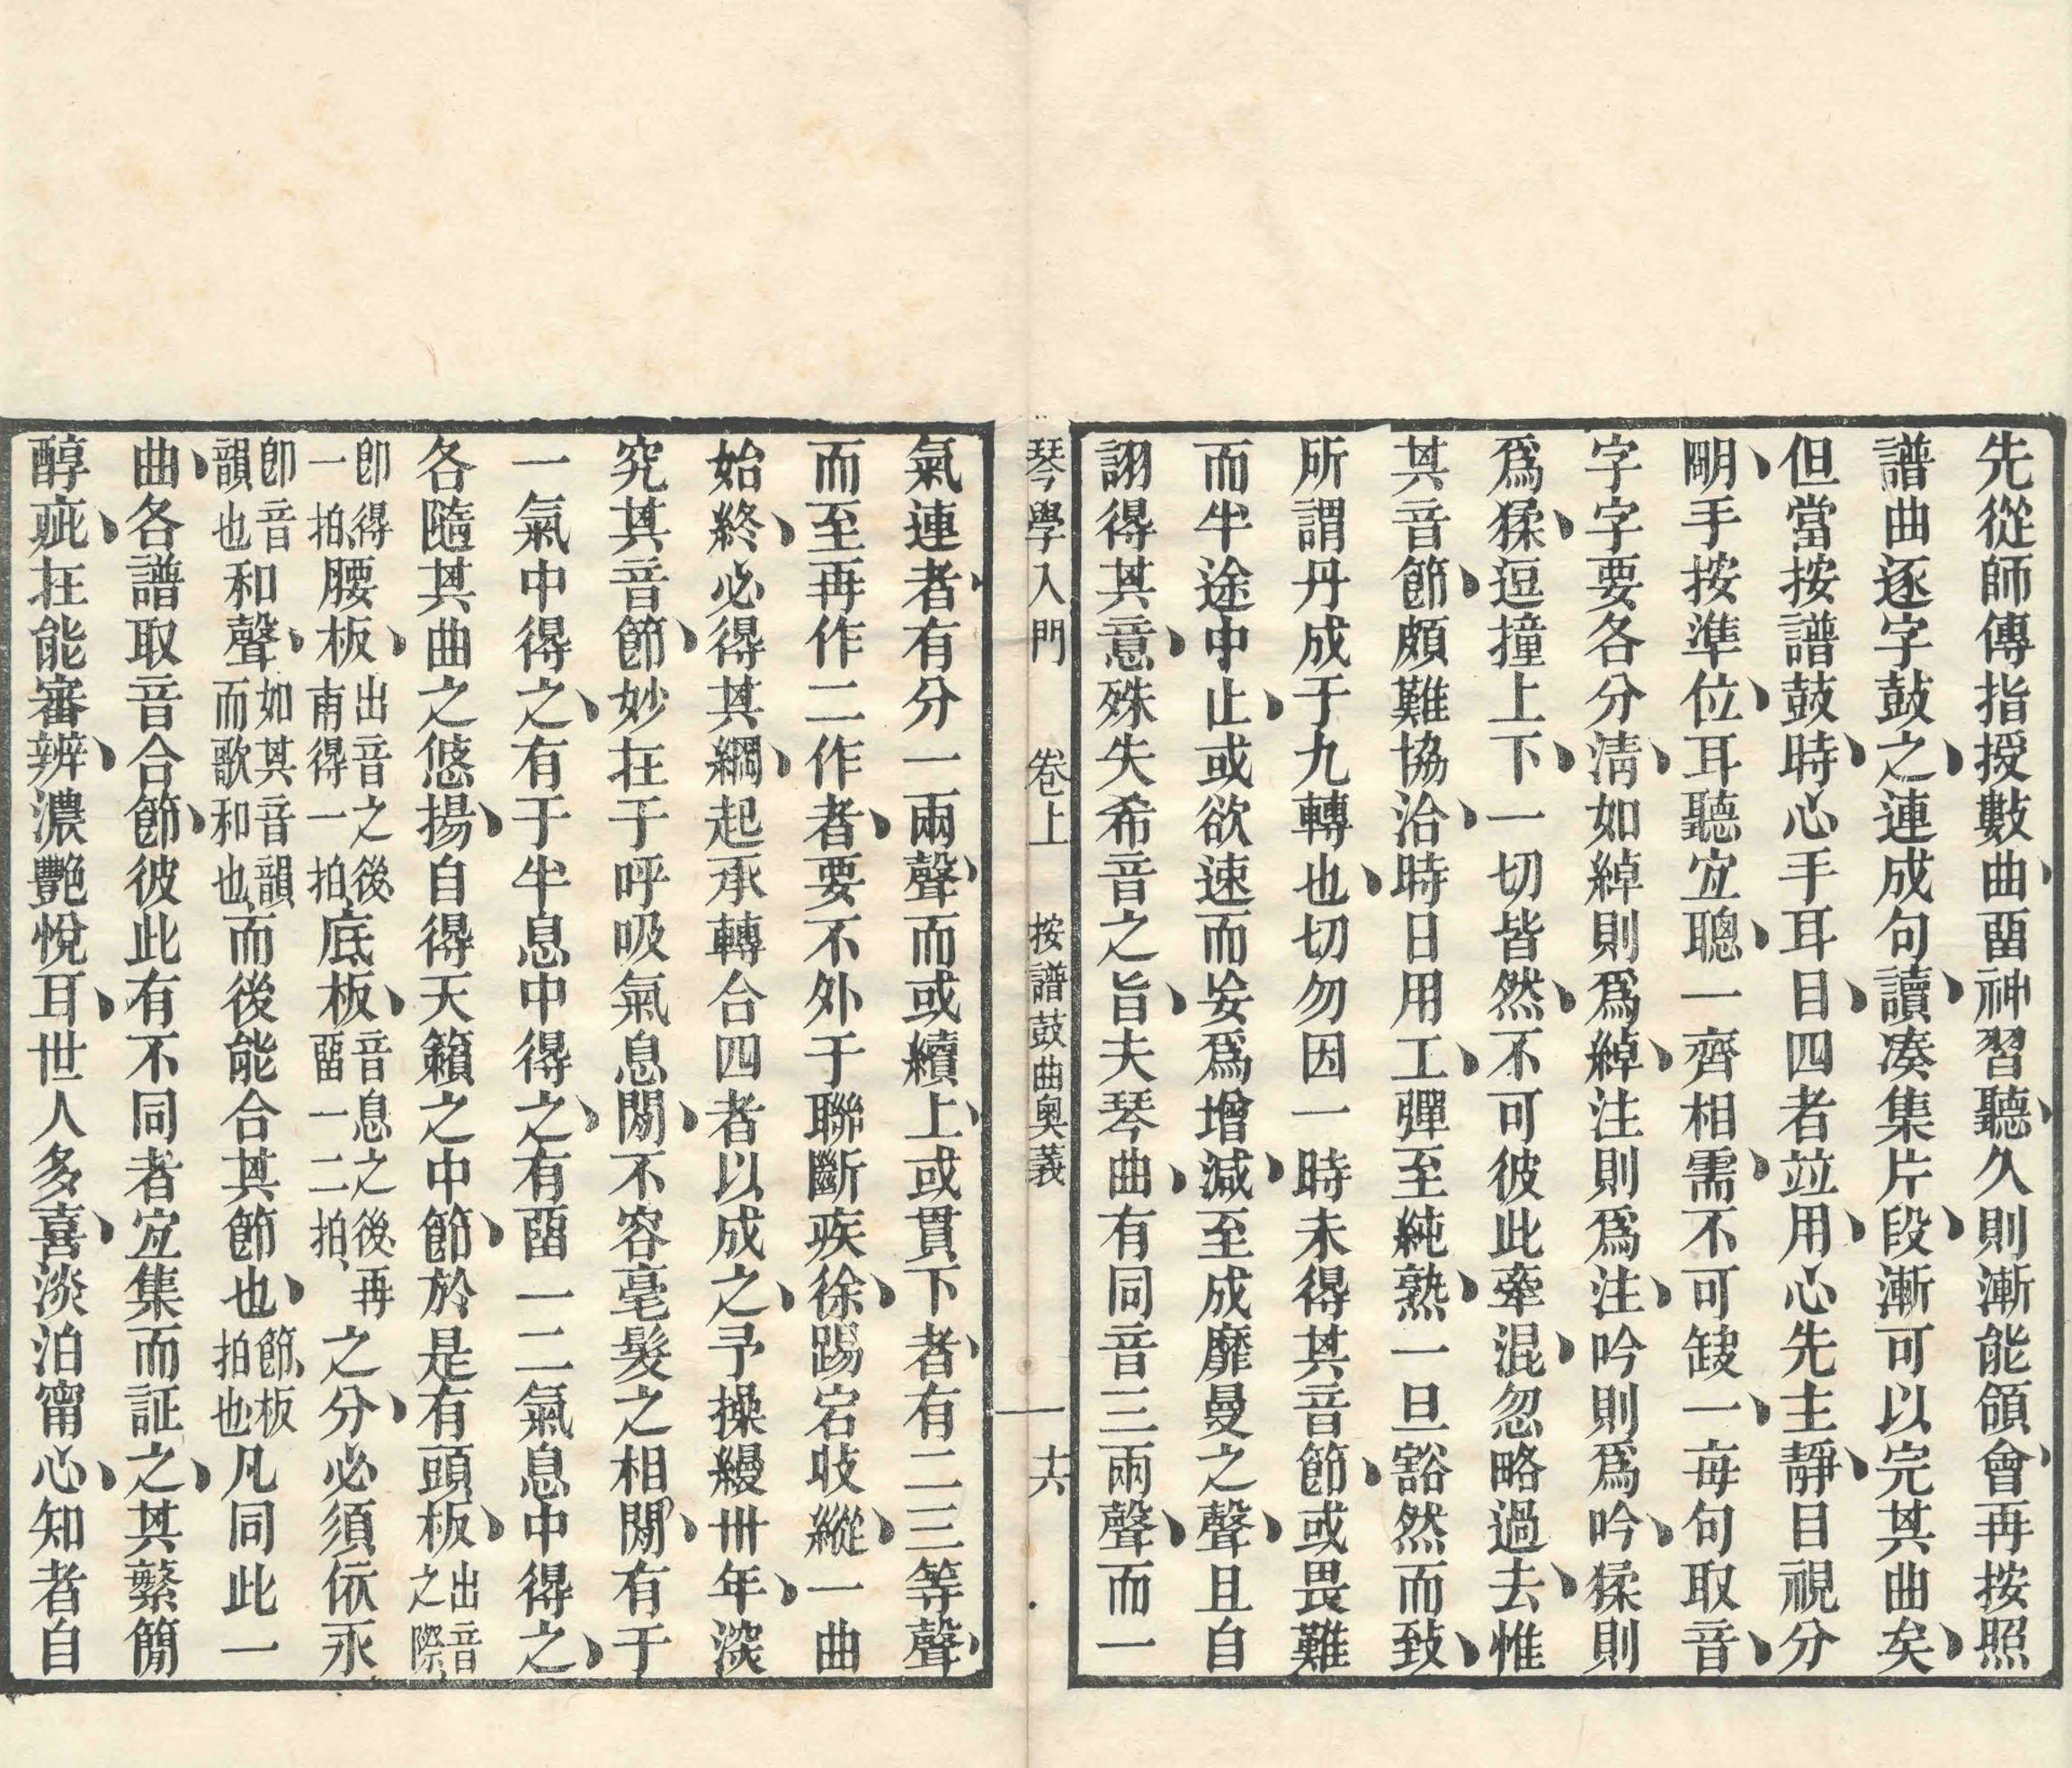 先從師傳指授數曲畱神習聽久則漸能領會再按照
譜曲逐字鼓之連成句讀湊集片段漸可以完其曲矣
但當按譜鼓時心手耳目四者竝用心先主靜目視分
朙手按準位耳聽宜聰一齊相需不可缺一每句取音
字字要各分淸如綽則爲綽注則爲注吟則爲吟猱則
爲猱逗撞上下一切皆然不可彼此牽混忽略過去惟
其音節頗難協洽時日用工彈至純熟一旦豁然而致
所謂丹成于九轉也切勿因一時未得其音節或畏難
而半途中止或欲速而妄爲增減至成靡曼之聲且自
詡得其意殊失希音之旨夫琴曲有同音三兩聲而一
琴學入門 卷上 按譜鼓曲奧義 十六
氣連者有分一兩聲而或續上或貫下者有二三等聲
而至再作二作者要不外于聯斷疾徐踢宕歧縱一曲
始終必得其綱起承轉合四者以成之予操縵卅年淡
究其音節妙在于呼吸氣息閒不容毫髮之相閒有于
一氣中得之有于半息中得之有畱一二氣息中得之
各隨其曲之悠揚自得天籟之中節於是有頭板出音之際
卽得一拍腰板出音之後甫得一拍底板音息之後再畱一二拍之分必須依永
卽音韻也和聲如其音韻而歌和也而後能合其節也節板拍也凡同此一
曲各譜取音合節彼此有不同者宜集而証之其繁簡
醇疵在能審辨濃艷悅耳世人多喜淡泊甯心知者自